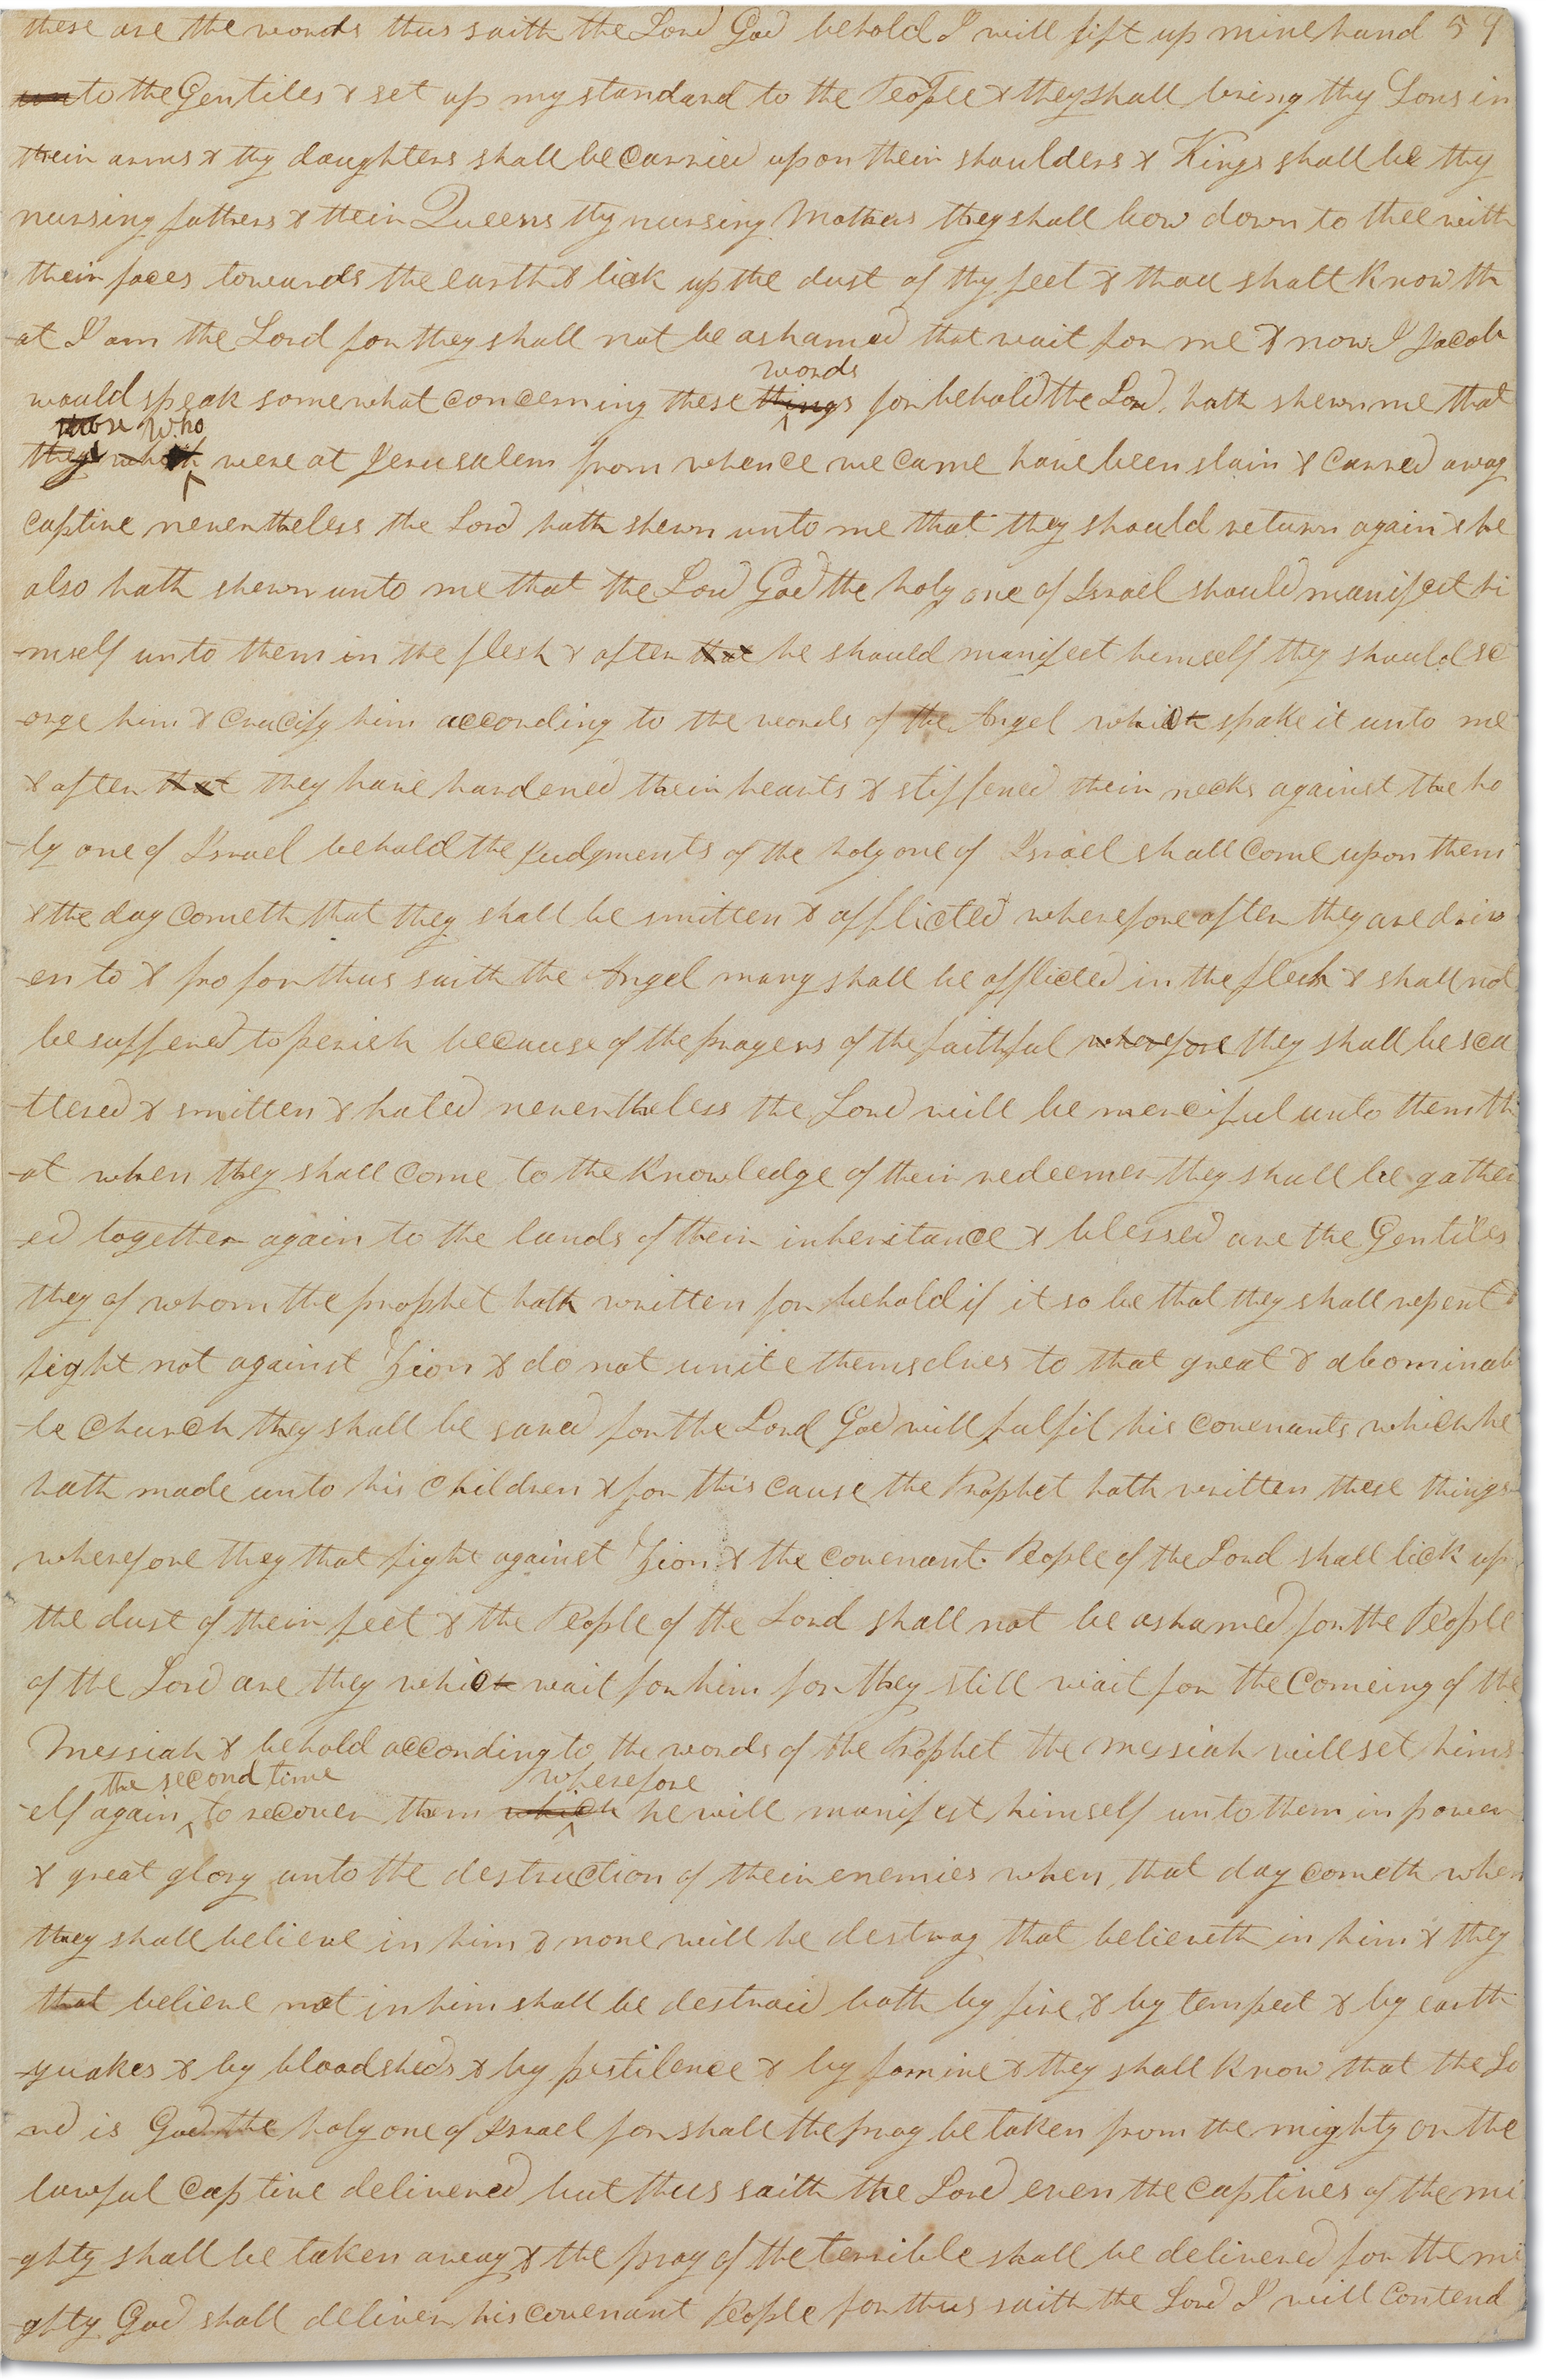 these are the words thus saith the Lord God behold I will lift up mine hand 59
unto the Gentiles & set up my standard to the People & they shall bring thy Sons in
their arms & thy daughters shall be Carried upon their shoulders & Kings shall be thy
nursing fathers & their Queens thy nursing Mothers they shall bow down to thee with
their faces towards the earth & lick up the dust of thy feet & thou shalt Know th
-at I am the Lord for they shall not be ashamed that wait for me & now I Jacob
words
would speak somewhat Concerning these things for behold the Lord, hath shewn me that
those who
they which were at Jerusalem from whence we came have been slain & Carried away
Captive nevertheless the Lord hath shewn unto me that they should return again & he
also hath shewn unto me that the Lord God the holy one of Israel should manifest hi
-mself unto them in the flesh & after that he should manifest himself they should sc
-orge him & Crucify him according to the words of the Angel which spake it unto me
& after that they have hardened their hearts & stiffened their necks against the ho
-ly one of Israel behold the Judgments of the holy one of Israel shall Come upon them
& the day Cometh that they shall be smitten & afflicted wherefore after they are driv
-en to & fro for thus saith the Angel many shall be afflicted in the flesh & shall not
be suffered to perish because of the prayers of the faithful wherefore they shall be sca
-ttered & smitten & hated nevertheless the Lord will be merciful unto them th
-at when they shall Come to the Knowledge of their redeemer they shall be gather
-ed together again to the lands of their inheritance & blessed are the Gentiles
they of whom the prophet hath written for behold if it so be that they shall repent &
fight not against Zion & do not unite themselves to that great & abominab
-le Church they shall be saved for the Lord God will fulfil his Covenants which he
hath made unto his Children & for this cause the Prophet hath written these things
wherefore they that fight against Zion & the covenant People of the Lord shall lick up
the dust of their feet & the People of the Lord shall not be ashamed for the People
of the Lord are they which wait for him for they still wait for the Comeing of the
Messiah & behold according to the words of the Prophet the Messiah will set hims
the second time wherefore
-elf again to recover them which he will manifest himself unto them in power
& great glory unto the destruction of their enemies when that day cometh when
they shall believe in him & none will he destroy that believeth in him & they
that believe not in him shall be destroid both by fire & by tempest & by earth
-quakes & by bloodsheds & by pestilence & by famine & they shall Know that the Lo
-rd is God the holy one of Israel for shall the pray be taken from the mighty or the
lawful Captive delivered but thus saith the Lord even the Captives of the mi
-ghty shall be taken away & the pray of the terrible shall be delivered for the mi
-ghty God shall deliver his covenant People for thus saith the Lord I will Contend